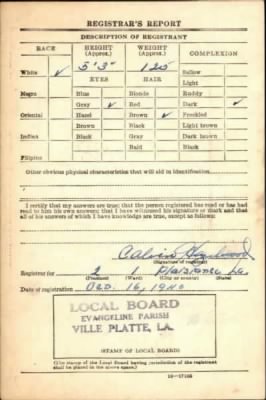 REGISTRAR'S REPORT
DESCRIPTION OF REGISTRANT
RACE HEIGHT (Approx.) WEIGHT (Approx.) COMPLEXION
White ✓ 5'3" 125 Sallow
Light
EYES HAIR
Negro Blue Blonde Ruddy
Gray ✓ Red Dark ✓
Oriental Hazel Brown ✓ Freckled
Brown Black Light brown
Indian Black Gray Dark brown
Bald Black
Filipino
Other obvious physical characteristics that will aid in identification
I certify that my answers are true; that the person registered has read or has had read to him his own answers; that I have witnessed his signature or mark and that all of his answers of which I have knowledge are true, except as follows:
Calvin
(Signature of registrar)
Registrar for 2 1 Plaisance La.
(Precinct) (Ward) (City or county) (State)
Date of registration Oct. 16, 1940
LOCAL BOARD
EVANGELINE PARISH
VILLE PLATTE, LA.
(STAMP OF LOCAL BOARD)
(The stamp of the Local Board having jurisdiction of the registrant shall be placed in the above space.)
16-17105